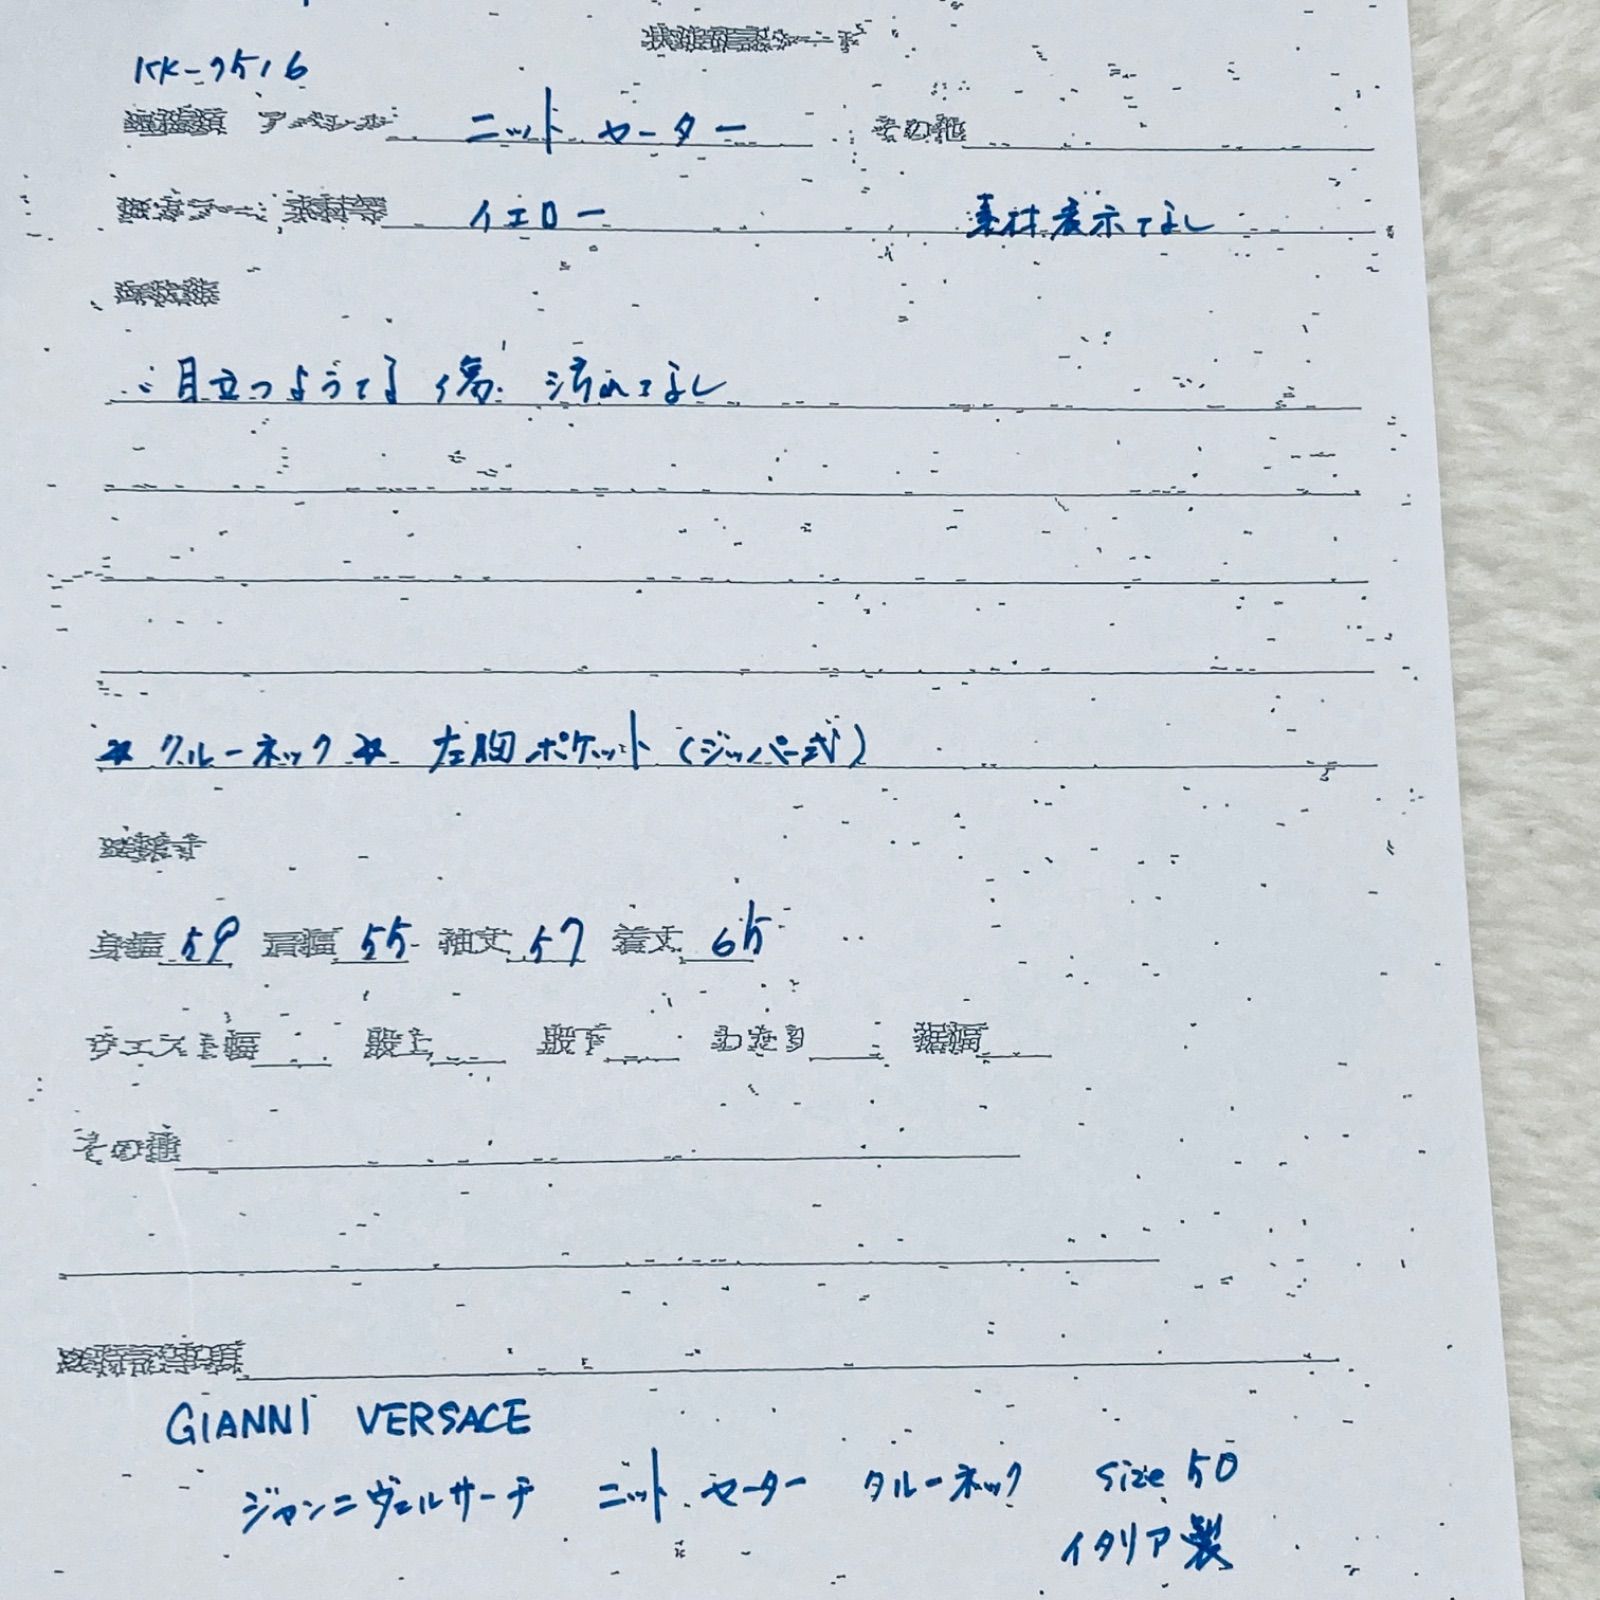 KK-7516
アパレル ニット セーター その他
イエロー 素材表示なし
目立つような傷 汚れなし
★ クルーネック ★ 左胸ポケット (ジッパー式)
身幅 59 肩幅 55 袖丈 57 着丈 65
ウエスト幅 股上 股下 わたり 裾幅
その他
GIANNI VERSACE
ジャンニヴェルサーチ ニット セーター クルーネック size 50
イタリア製